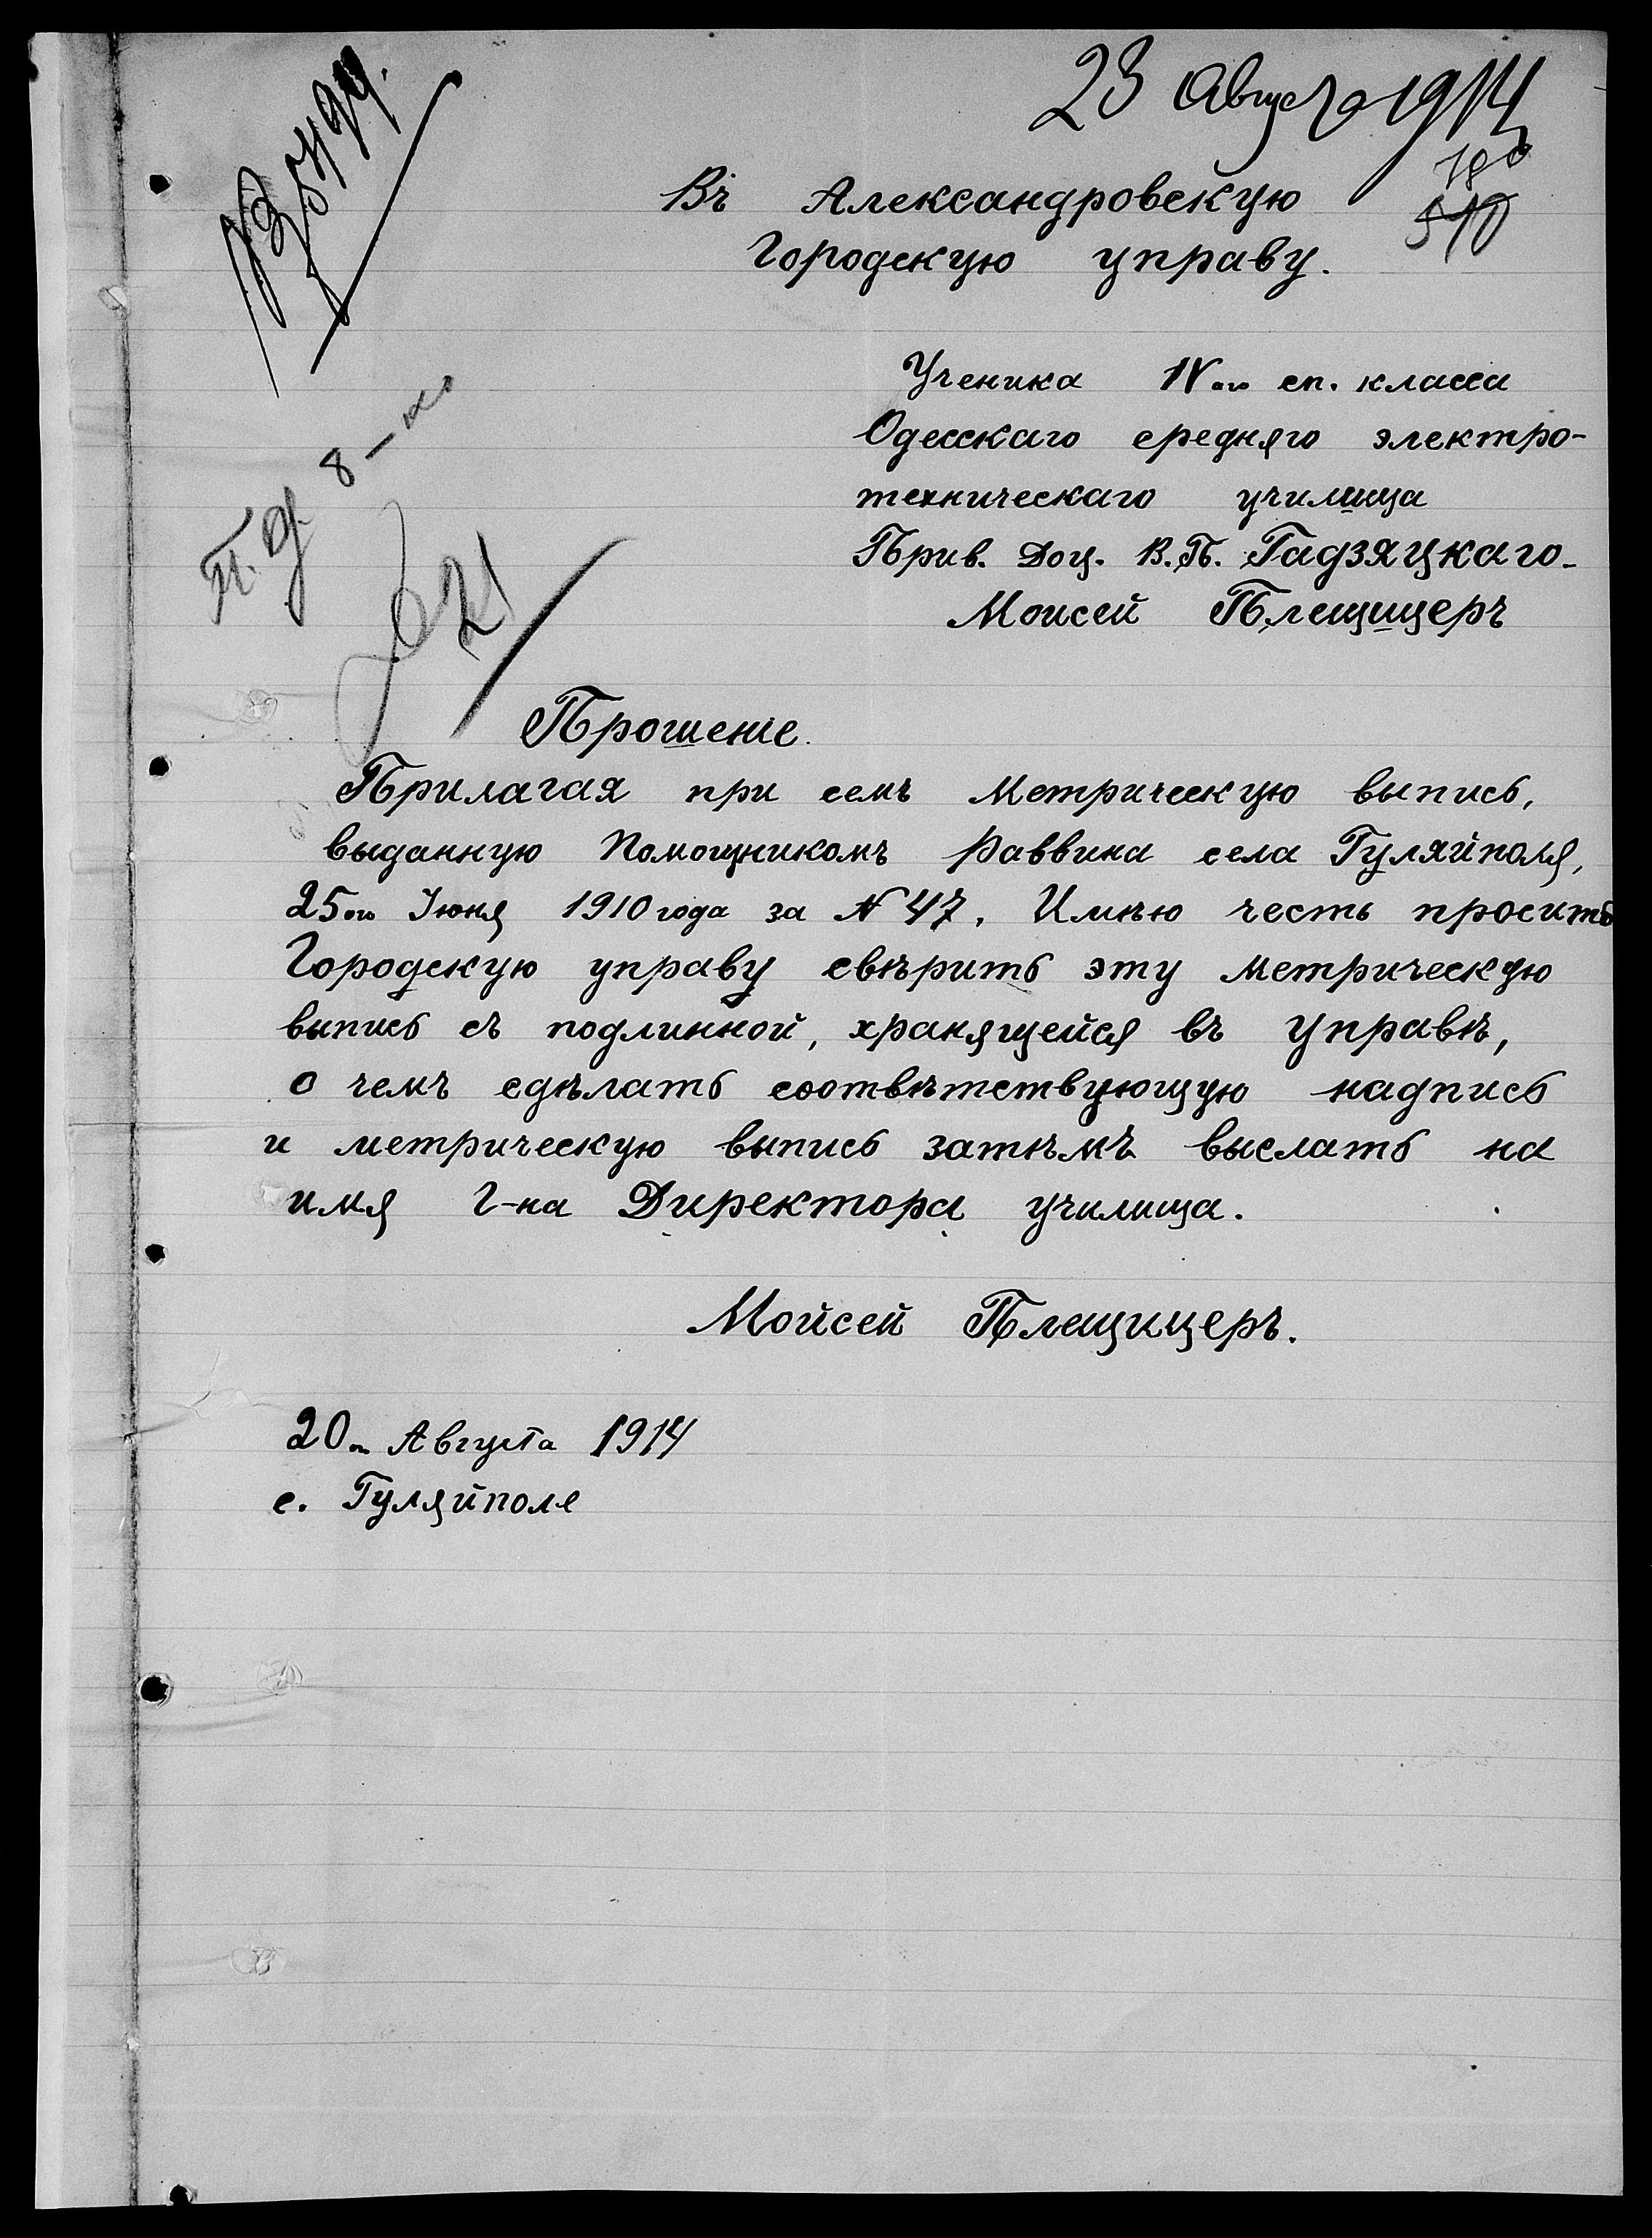 23 Августа 1914
Въ Александровскую
510
Городскую управу.
Ученика IVого сп. класса
Одесскаго средняго электро-
техническаго училища
Прив. Доц. В.П. Гадзяцкаго.
Моисей Плещицеръ
21
Прошеніе.
Прилагая при семъ метрическую выпись,
выданную Помощникомъ Раввина села Гуляйполя,
25ого Іюня 1910 года за N 47. Имѣю честь просить
Городскую управу свѣрить эту метрическую
выпись съ подлинной, хранящейся въ управѣ,
о чемъ сдѣлать соотвѣтствующую надпись
и метрическую выпись затѣмъ выслать на
имя г-на Директора училища.
Мойсей Плещицеръ.
20го Августа 1914
с. Гуляйполе